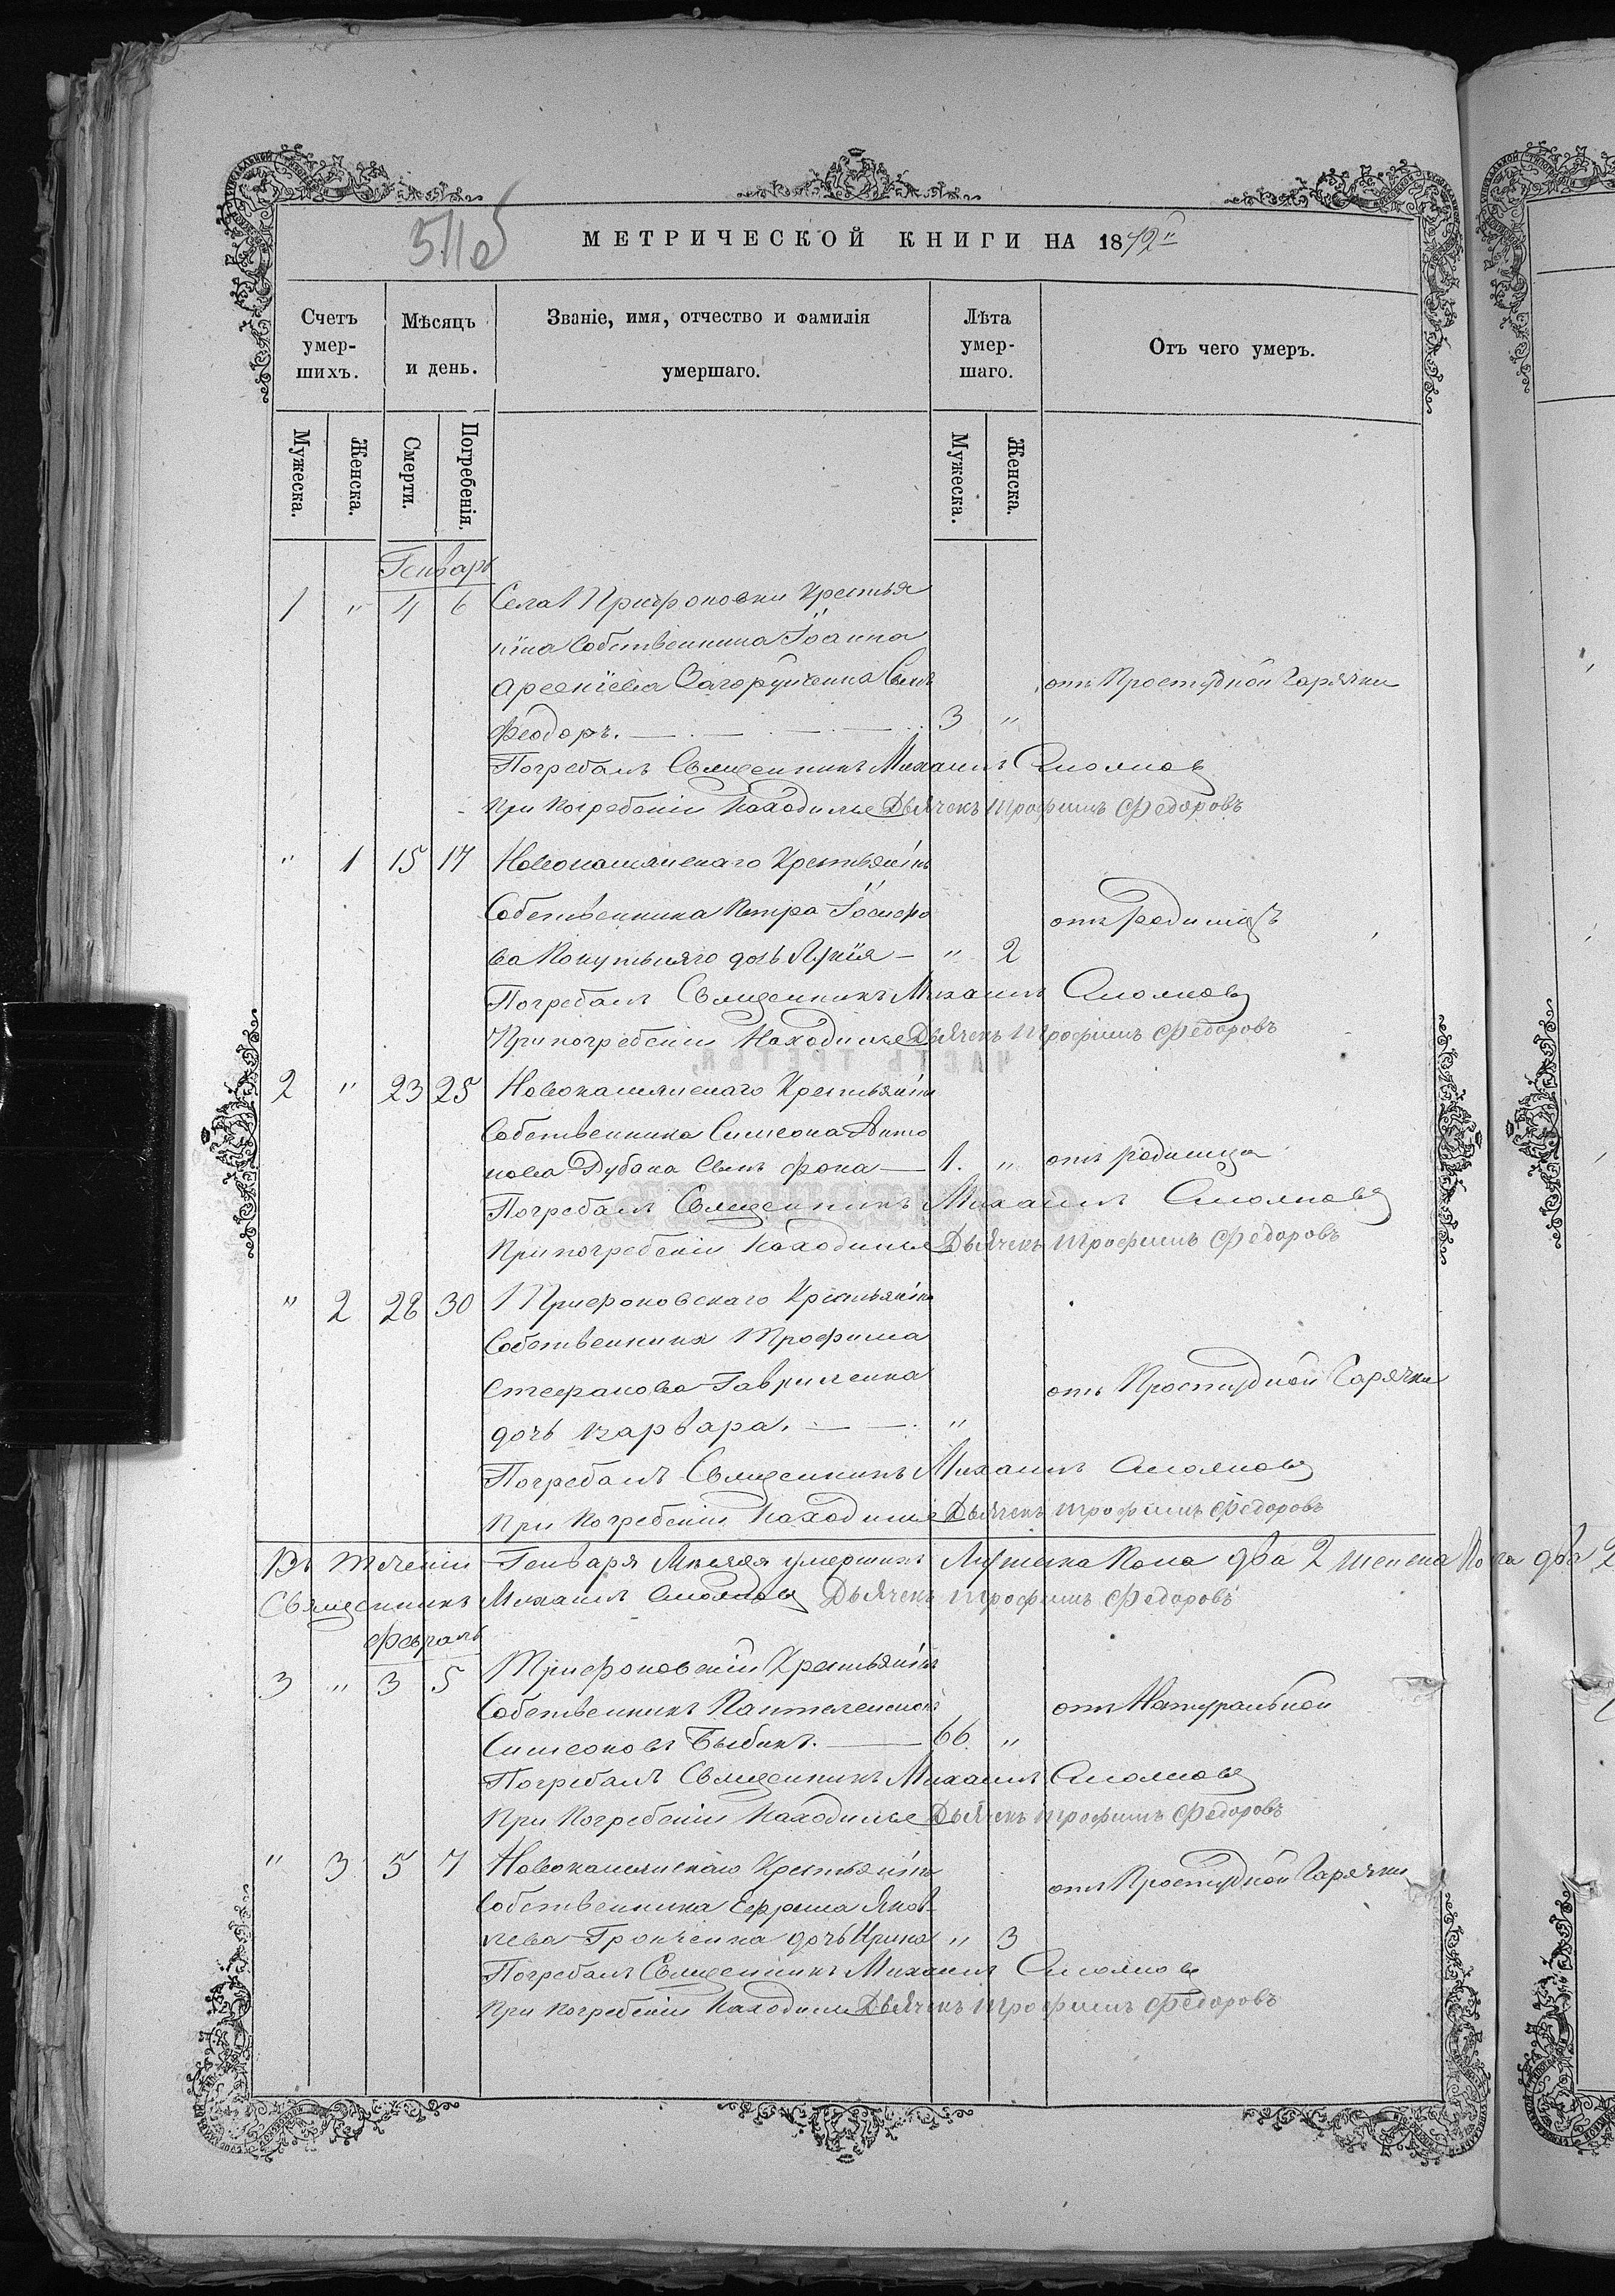 511об
МЕТРИЧЕСКОЙ КНИГИ НА 1872й
Счетъ умер-шихъ.
Мѣсяцъ и день.
Званіе, имя, отчество и фамилія умершаго.
Лѣта умер-шаго.
Отъ чего умеръ.
Мужеска.
Женска.
Смерти.
Погребенія.
Мужеска.
Женска.
Генварь
1 " 4 6 Села Трифоновки Крестья
нина Собственника Іоанна
Арсеніева Загоруйченка Сынъ отъ Простудной Гарячки
Феодоръ. 3 "
Погребалъ Священникъ Михаилъ
При Погребеніи Находился Дьячекъ Трофимъ Федоровъ
" 1 15 17 Новокаменскаго Крестьянина
Собственника Петра Іосифо отъ Родимца
ва Покутняго дочь Лукія - " 2
Погребалъ Священникъ Михаилъ
При погребеніи Находился Дьячекъ Трофимъ Федоровъ
2 " 23 25 Новокаменскаго Крестьянина
Собственника Симеона Анто
нова Дубока Сынъ фока 1. " отъ родимца
Погребалъ Священникъ Михаилъ
При погребеніи Находился Дьячекъ Трофимъ Федоровъ
" 2 28 30 Трифоновскаго Крестьянина
Собственника Трофима
Стефанова Гавриленка отъ Простудной Гарячки
дочь Варвара. "
Погребалъ Священникъ Михаилъ
При Погребеніи Находился Дьячекъ Трофимъ Федоровъ
Въ Теченіи Генваря Месяца умершихъ Мужска Пола два 2 женска Пола два 2
Священникъ Михаилъ Дьячекъ Трофимъ Федоровъ
Февраль
3 " 3 5 Трифоновскій Крестьянинъ
Собственникъ Пантелеимонъ отъ Натуральной
Симеоновъ Быбикъ. 66 "
Погребалъ Священникъ Михаилъ
При Погребеніи Находился Дьячекъ Трофимъ Федоровъ
" 3 5 7 Новокаменскаго Крестьянина отъ Простудной Гарячки
Собственника Ефрема Яков
лева Гронченка дочь Ирина " 3
Погребалъ Священникъ Михаилъ
При погребеніи Находился Дьячекъ Трофимъ Федоровъ